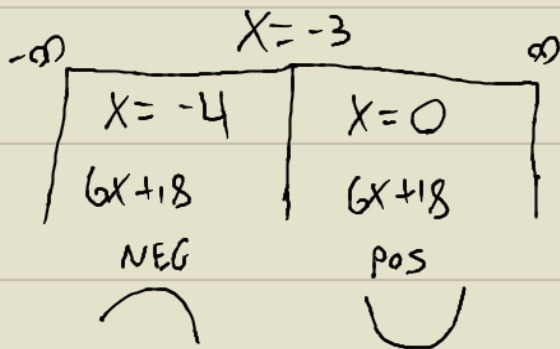 X= -3
-∞ ∞
X= -4 X= 0
6X+18 6X+18
NEG POS